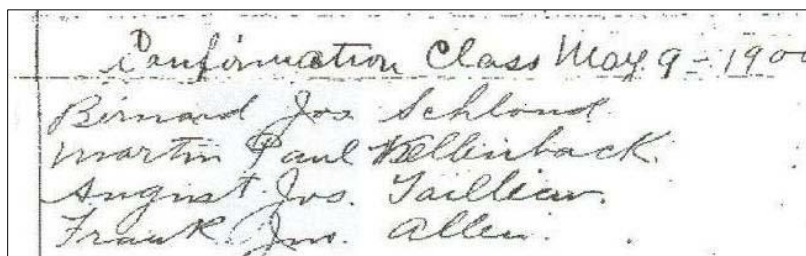 Confirmation Class May 9 - 1900
Bernard Jos Schlond.
Martin Paul Kellenback.
August Jos. Taillieu.
Frank Jno. Allen.